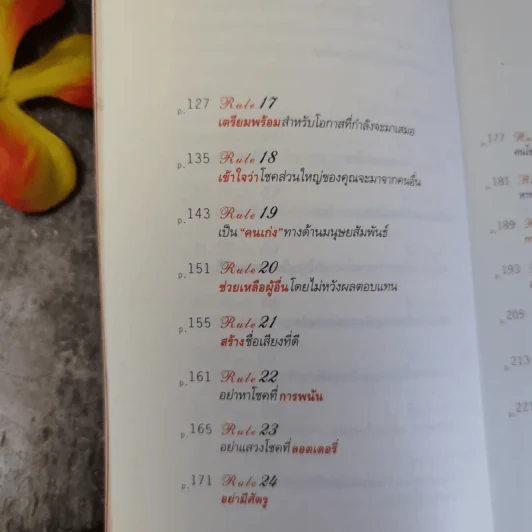 p.127 Rule 17
เตรียมพร้อมสำหรับโอกาสที่กำลังจะมาเสมอ
p.135 Rule 18
เข้าใจว่าโชคส่วนใหญ่ของคุณจะมาจากคนอื่น
p.143 Rule 19
เป็น "คนเก่ง" ทางด้านมนุษยสัมพันธ์
p.151 Rule 20
ช่วยเหลือผู้อื่นโดยไม่หวังผลตอบแทน
p.155 Rule 21
สร้างชื่อเสียงที่ดี
p.161 Rule 22
อย่าหาโชคที่การพนัน
p.165 Rule 23
อย่าแสวงโชคที่ลอตเตอรี่
p.171 Rule 24
อย่ามีศัตรู
p.177
p.181
p.189
p.193
p.221